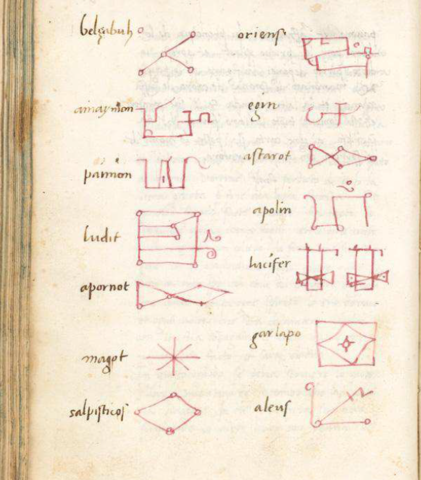 belzabuh
oriens
amaymon
egin
paimon
astarot
apolin
ludit
lucifer
apornot
garlapo
magot
salpisticos
aleus